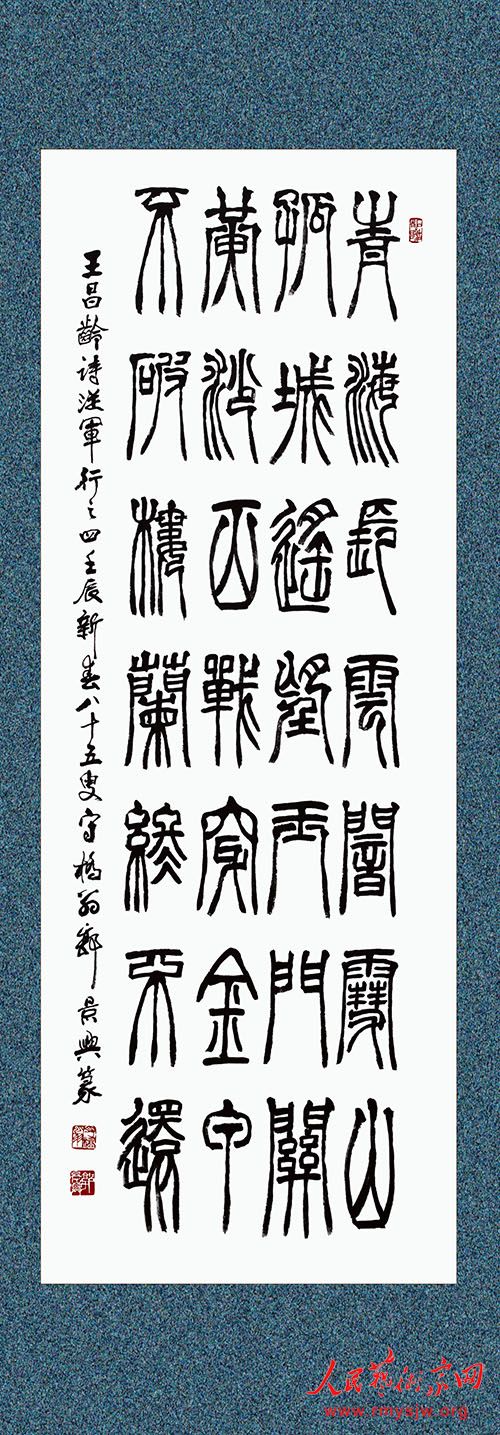 青海長雲闇雪山
孤城遙望玉門關
黃沙百戰穿金甲
不破樓蘭終不還
王昌齡詩從軍行之四壬辰新春八十五叟守橋翁郭景興篆
人民藝術家网
www.rmysjw.org